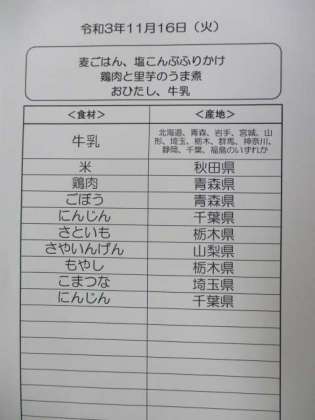 令和3年11月16日（火）
麦ごはん、塩こんぶふりかけ
鶏肉と里芋のうま煮
おひたし、牛乳
＜食材＞ ＜産地＞
牛乳 北海道、青森、岩手、宮城、山
形、埼玉、栃木、群馬、神奈川、
静岡、千葉、福島のいずれか
米 秋田県
鶏肉 青森県
ごぼう 青森県
にんじん 千葉県
さといも 栃木県
さやいんげん 山梨県
もやし 栃木県
こまつな 埼玉県
にんじん 千葉県